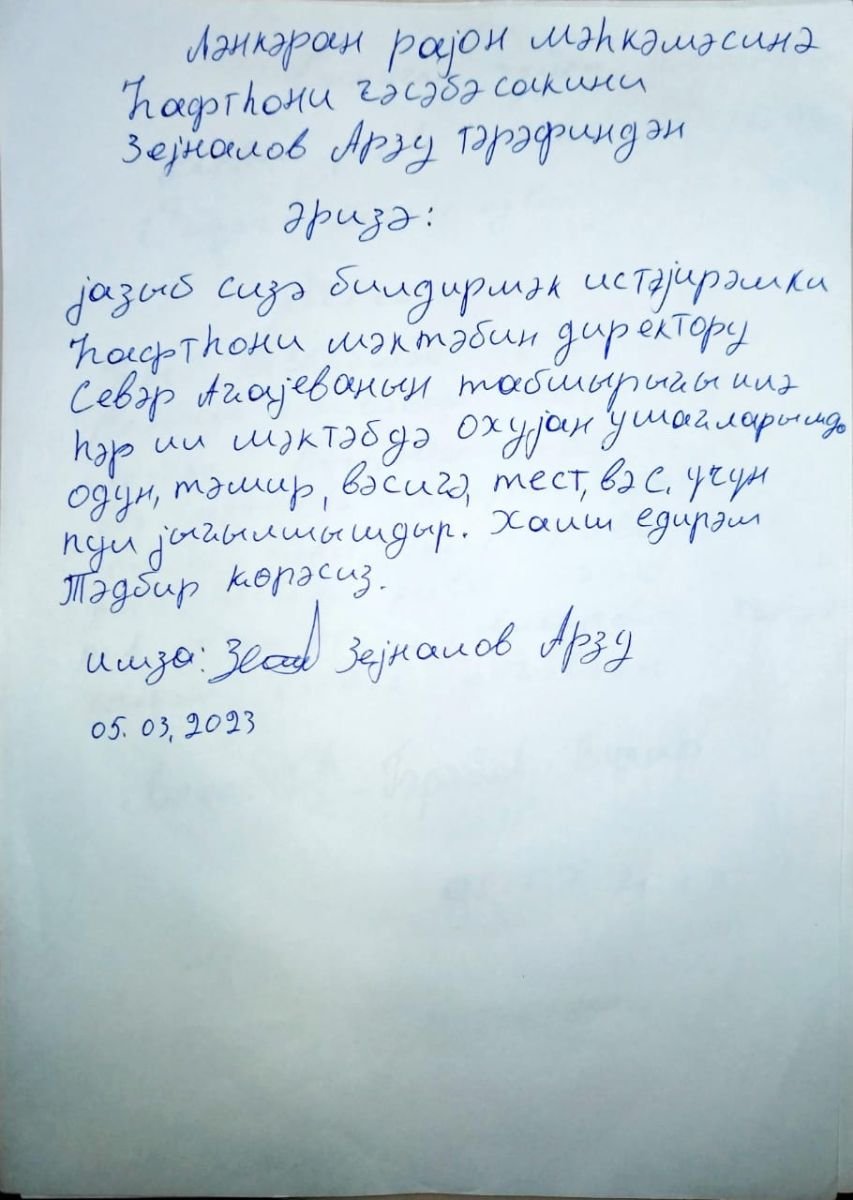 Ләнкәран рајон мәһкәмәсинә
Һафтһони гәсәбә сакини
Зејналов Арзу тәрәфиндән
әризә:
јазыб сизә билдирмәк истәјирәмки
Һафтһони мәктәбин директору
Севәр Агајеванын табшырыгы илә
һәр ил мәктәбдә охујан ушагларымдан
одун, тәмир, вәсигә, тест, вәс. учун
пул јыгылмышдыр. Хаиш едирәм
Тәдбир көрәсиз.
имза: Зејналов Арзу
05.03,2023